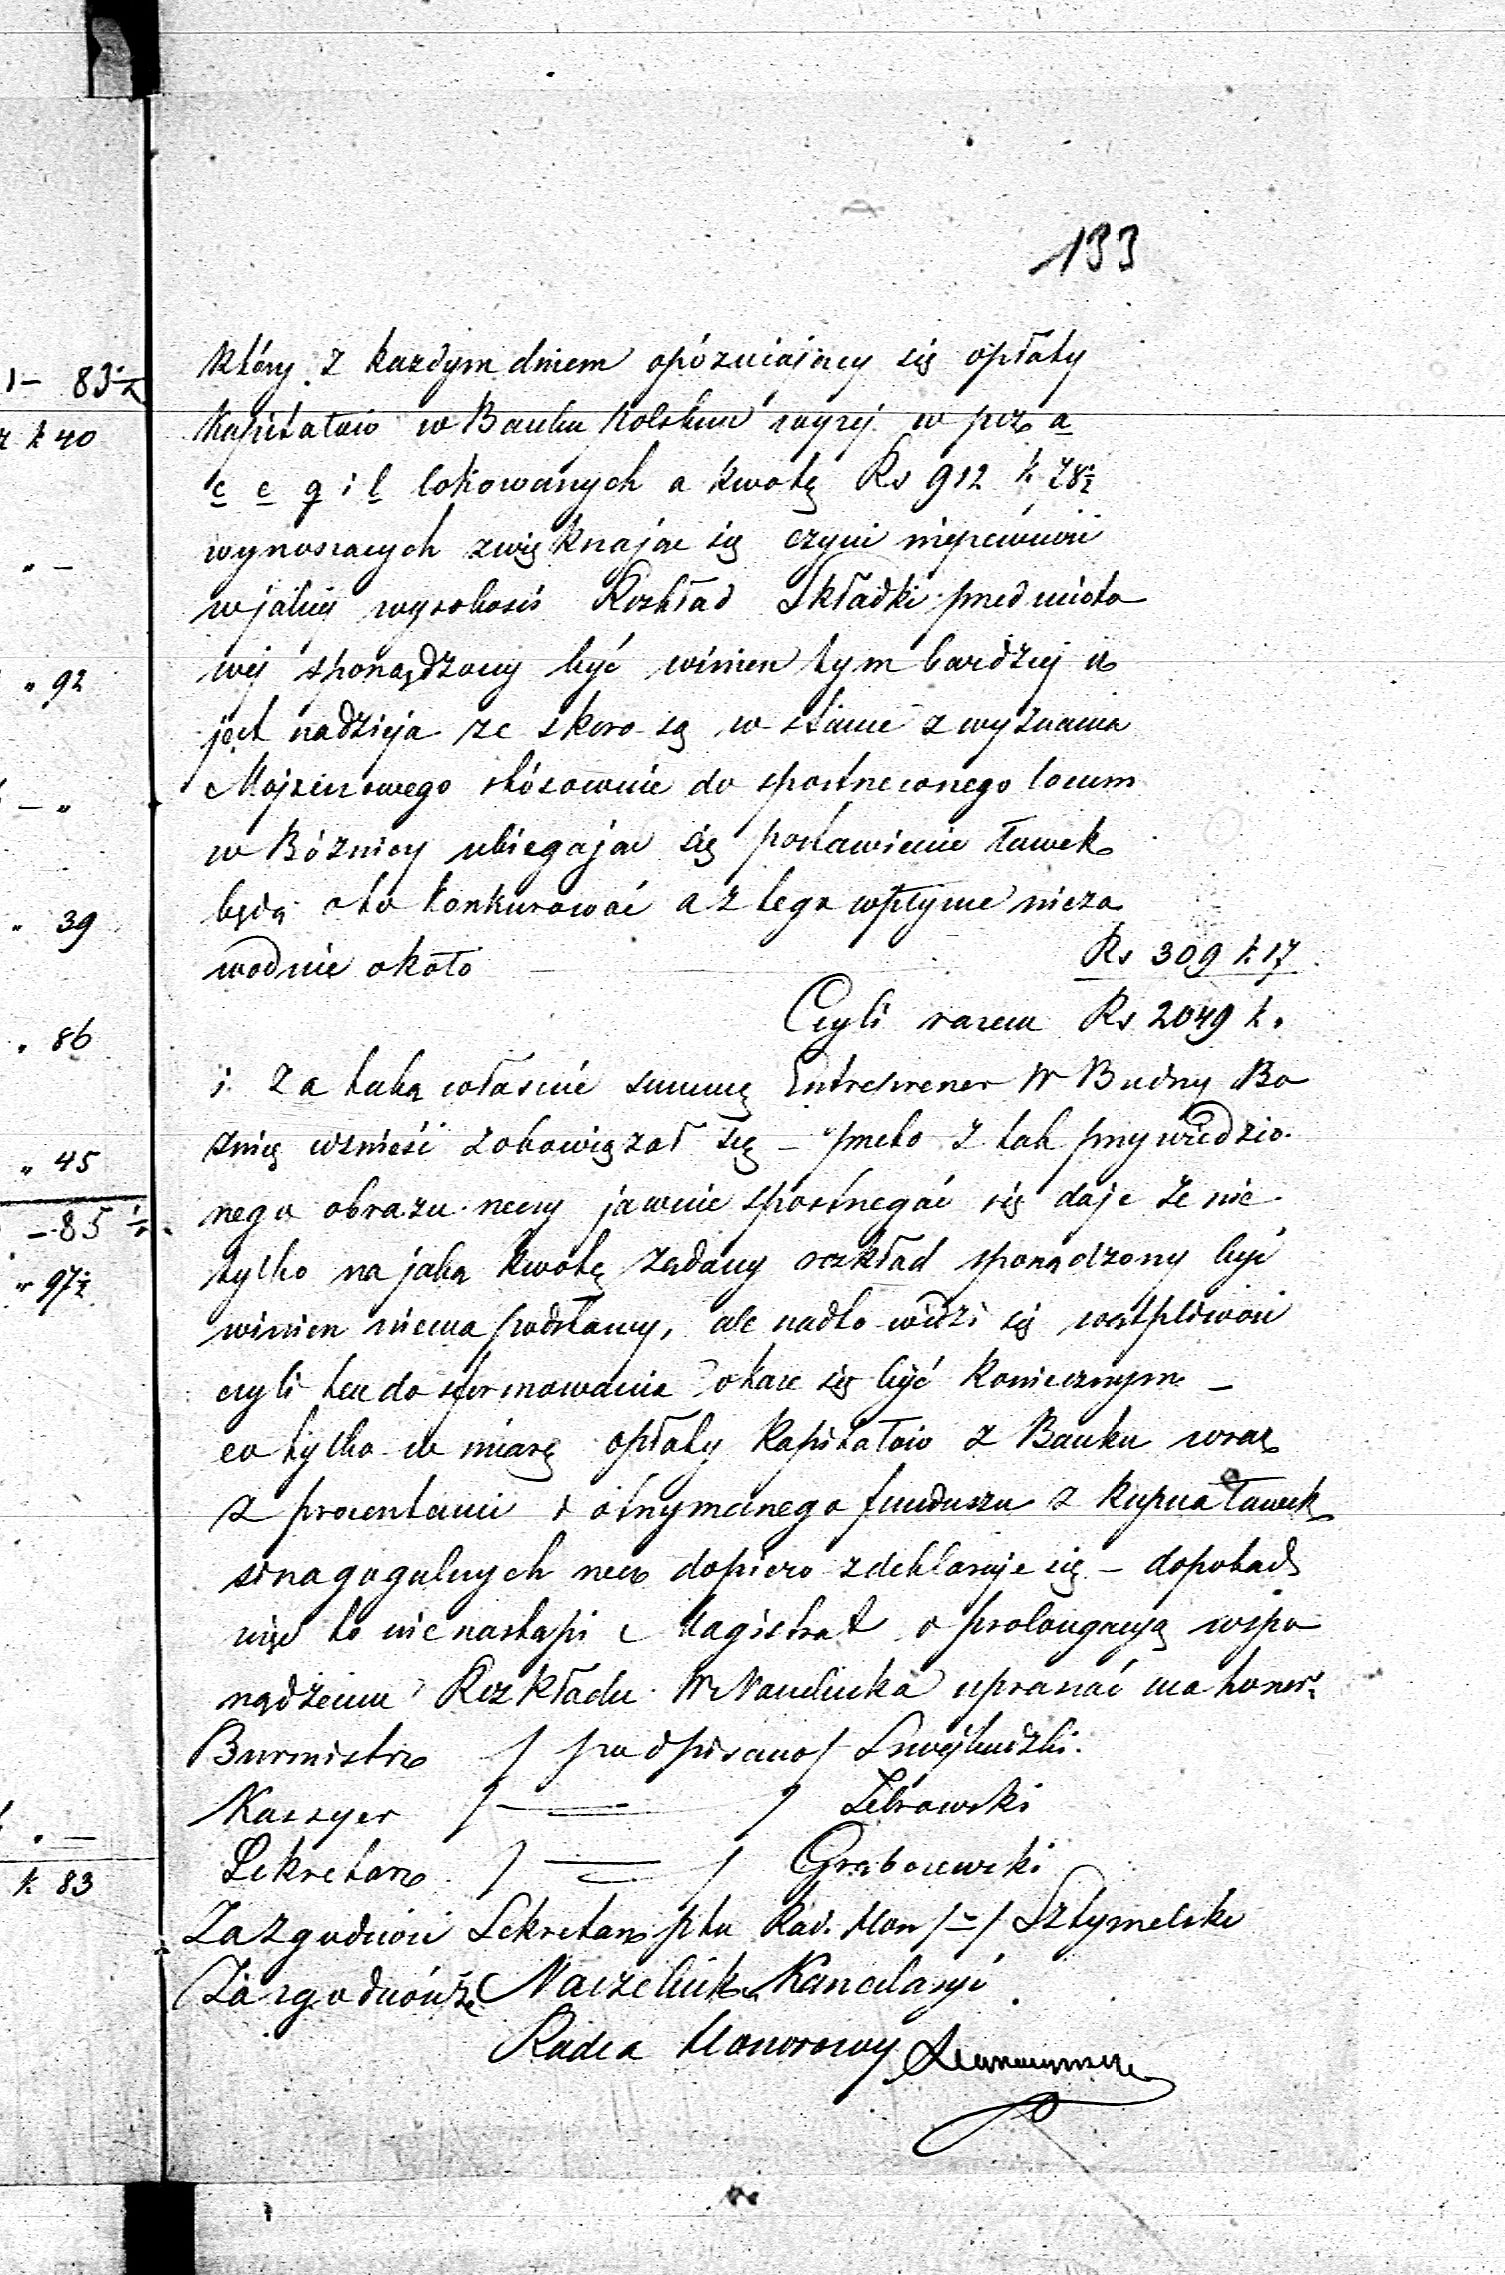 133
który z każdym dniem opózniaiący się opłaty
Kapitałów w Banku Polskim wyżej w poz. a
c e g i l lokowanych a kwotę Rs 912 k 28½
wynoszących zwiększając się czyni niepewność
w jakiej wysokości Rozkład Składki przedmioto
wej sporządzony być winien tym bardziej iż
jest nadzieja że skoro są w stanie z wyznania
Mojżeszowego stósownie do spostrzeżonego locum
w Bóżnicy ubiegając się postawienie ławek
będą o to konkurować a z tego wpłynie nieza
wodnie około Rs 309 k 17
Czyli razem Rs 2049 k „
i za taką właśnie summę Entreprener W Budny Bo
żnicę wznieść zobowiązał się – przeto z tak przywiedzio
nego obrazu rzeczy jawnie spostrzegać się daje że nie
tylko na jaką kwotę żądany rozkład sporządzony być
winien niema podstawy, ale nadto widzi się wątpliwość
czyli ten do sformowania okaże się być koniecznym –
co tylko w miarę opłaty Kapitałów z Banku wraz
z procentami i otrzymanego funduszu z kupna ławek
sinagogalnych rzecz dopiero zdeklaruje się – dopokąd
więc to nie nastąpi Magistrat o prolongacyą w spo
rządzeniu Rozkładu W Naczelnika upraszać ma honor
Burmistrz / podpisano /
Kassyer / — / Żebrowski
Sekretarz / — / Grabowski
Za zgodność Sekretarz ptu Rad. Hon /–/ Sztymelski
Za zgodność Naczelnik Kancelaryi
Radca Honorowy
83½
k 40
„ –
„ 92
– „
„ 39
„ 86
„ 45
– 85½
„ 97½
„ —
k 83